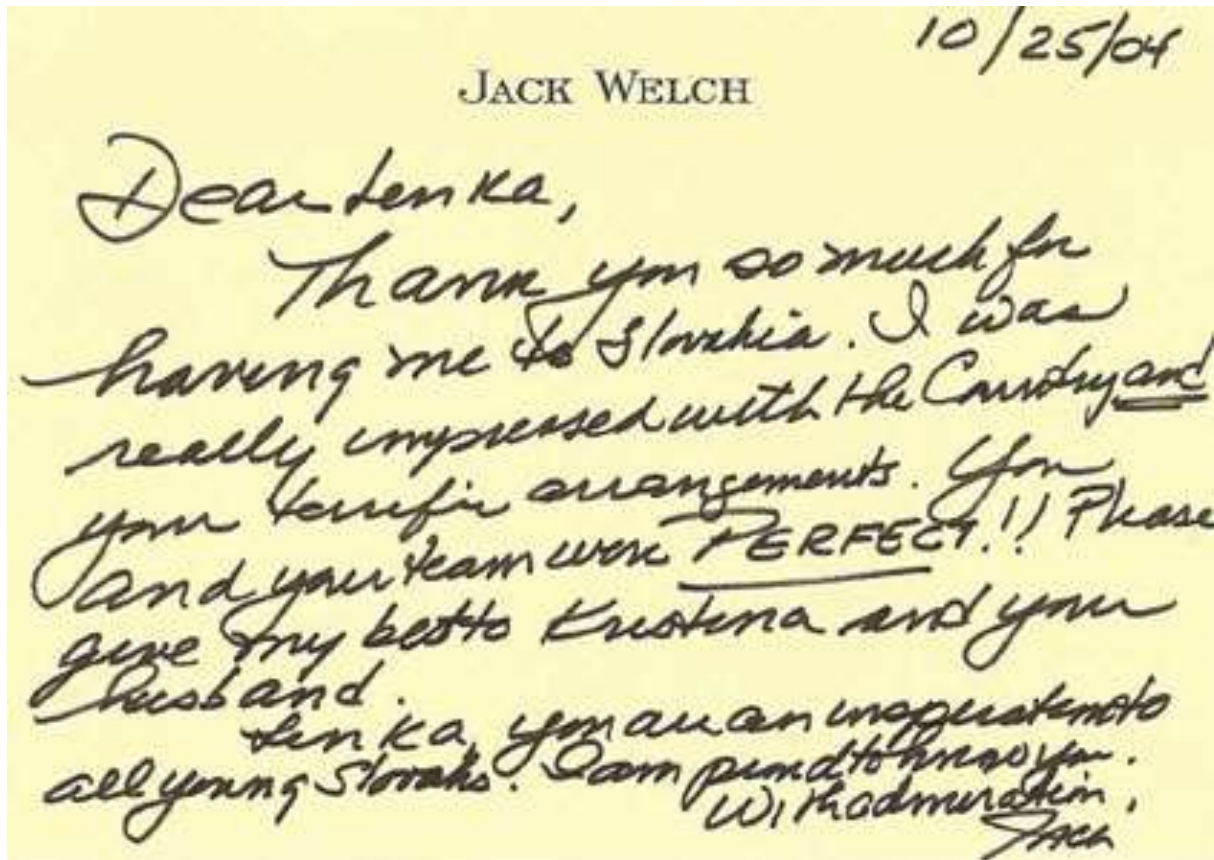 10/25/04
JACK WELCH
Dear Lenka,
Thank you so much for
having me to Slovakia. I was
really impressed with the Country and
your terrific arrangements. You
and your team were PERFECT!! Please
give my best to Kristina and your
husband.
Lenka, you are an inspiration to
all young Slovaks. I am proud to know you.
With admiration,
Jack